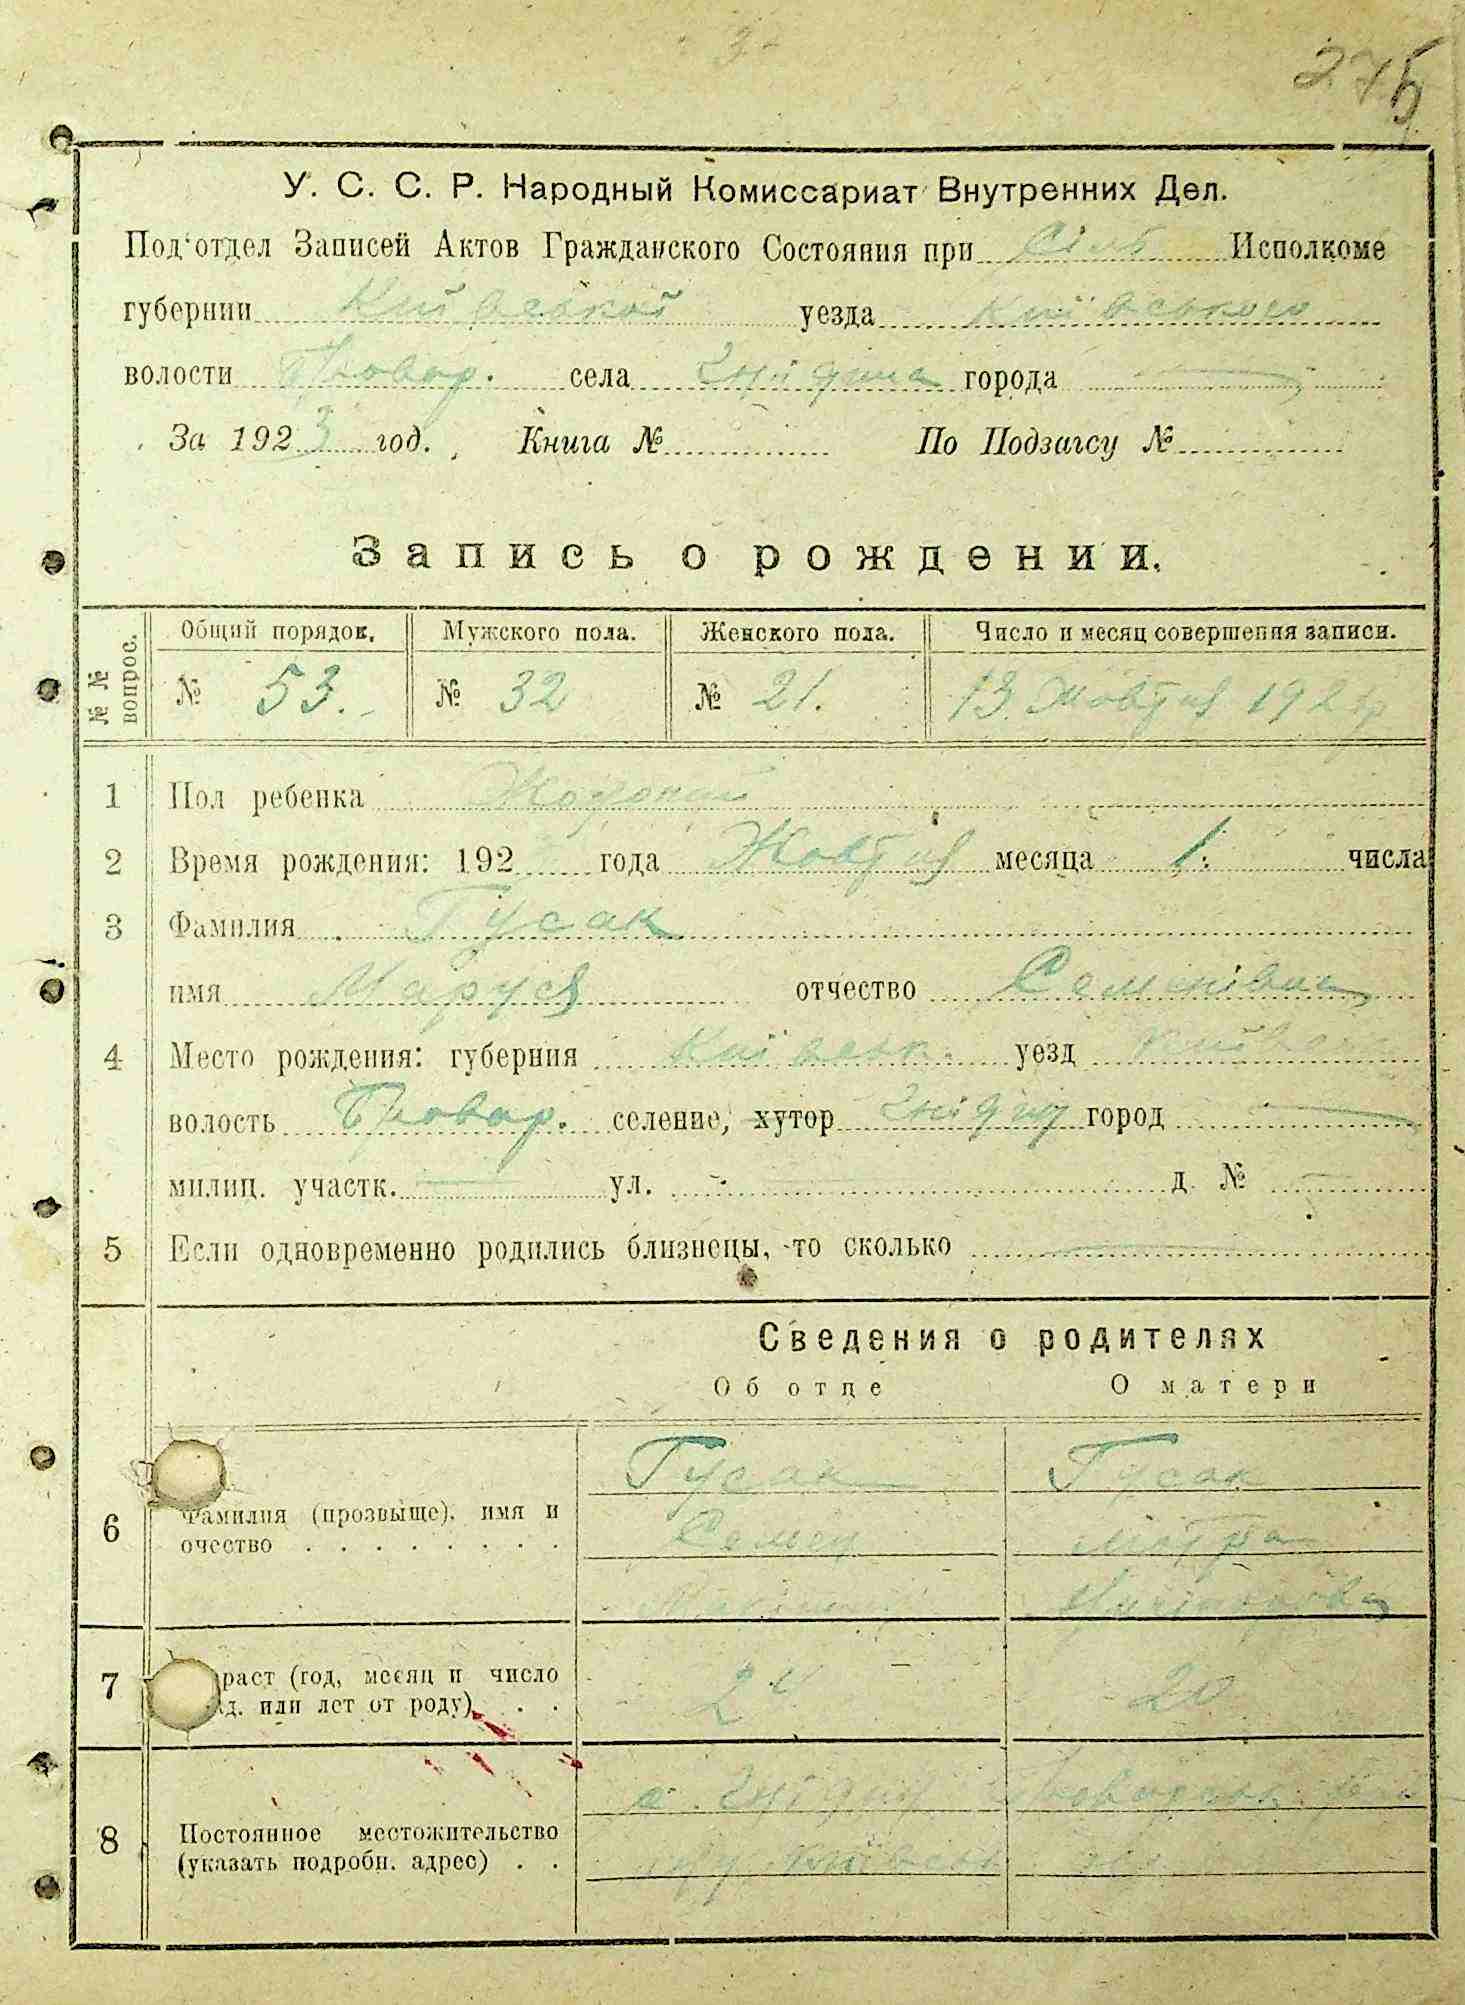 275
У. С. С. Р. Народный Комиссариат Внутренних Дел.
Под'отдел Записей Актов Гражданского Состояния при Сіль Исполкоме
губернии Київської уезда Київського
волости Бровар. села Гнідина города —
За 1923 год. Книга № По Подзагсу №
Запись о рождении.
№ № вопрос. Общий порядок. Мужского пола. Женского пола. Число и месяц совершения записи.
№ 53. № 32 № 21. 13 Жовтня 192
1 Пол ребенка
2 Время рождения: 192 года Жовтня месяца 1. числа
3 Фамилия Гусак
имя Маруся отчество Семенівна
4 Место рождения: губерния Київськ. уезд Київськ
волость Бровар. селение, хутор Гнідин город —
милиц. участк. — ул. — д. № —
5 Если одновременно родились близнецы, то сколько —
Сведения о родителях
Об отце О матери
6 Фамилия (прозвыще), имя и очество . . . . . . . .
Гусак Гусак
Семен Мотра
7 раст (год, месяц и число
жд. или лет от роду) . . 20
8 Постоянное местожительство (указать подробн. адрес) . .
с. Гнідин Броварськ.